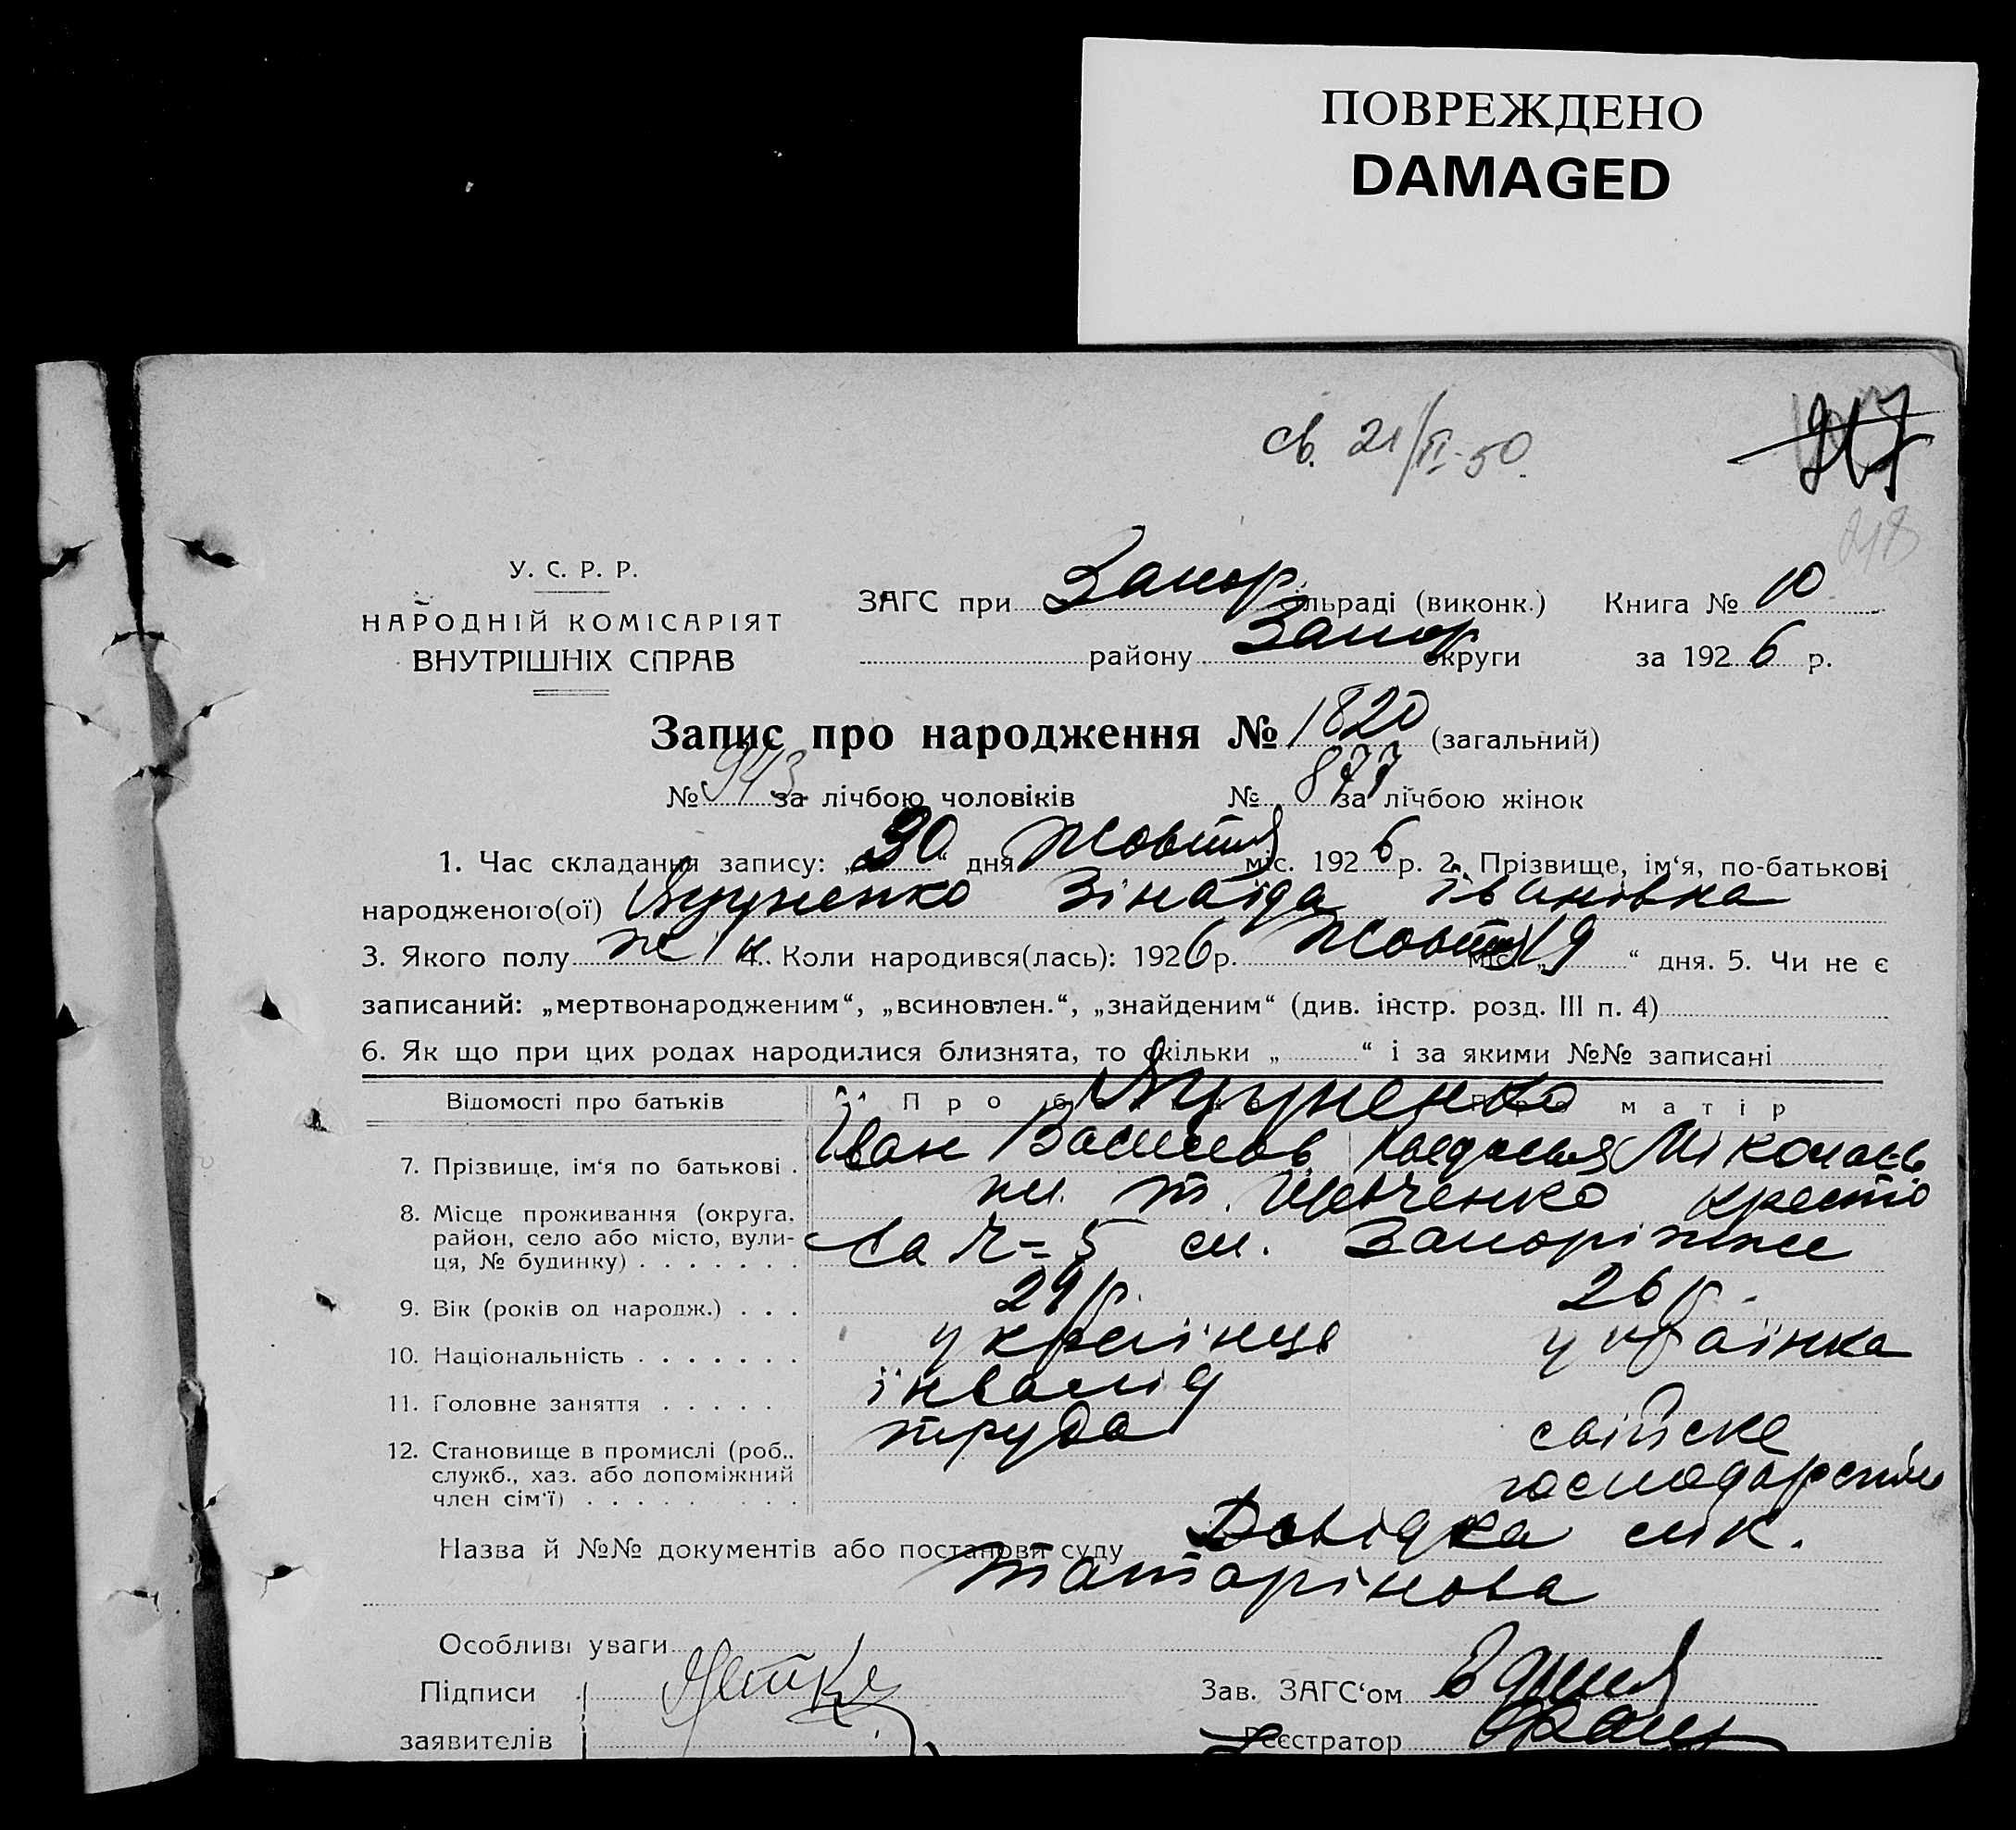 ПОВРЕЖДЕНО
DAMAGED
св. 21/II-50.
217
218
У. С. Р. Р.
НАРОДНІЙ КОМІСАРІЯТ
ВНУТРІШНІХ СПРАВ
ЗАГС при Запор. ільраді (виконк.) Книга № 10
району Запор округи за 1926 р.
Запис про народження № 1820 (загальний)
№ 943 за лічбою чоловіків № 877 за лічбою жінок
1. Час складання запису: „30“ дня Жовтня міс. 1926 р. 2. Прізвище, ім‘я, по-батькові
народженого(ої) Зінаїда Івановна
3. Якого полу ж 4. Коли народився(лась): 1926 р. Жовтня міс. „19“ дня. 5. Чи не є
записаний: „мертвонародженим“, „всиновлен.“, „знайденим“ (див. інстр. розд. III п. 4)
6. Як що при цих родах народилися близнята, то скільки „ “ і за якими №№ записані
Відомості про батьків Про матір
7. Прізвище, ім‘я по батькові . Іван Васильов Миколаєв
8. Місце проживання (округа, район, село або місто, вулиця, № будинку) . . . . . . . пл. Т. Шевченко
са Ч-5 см. Запоріжже
9. Вік (років од народж.) . . . 29 р. 26 р.
10. Національність . . . . . . . українць українка
11. Головне заняття . . . . . інвалід
12. Становище в промислі (роб., служб., хаз. або допоміжний член сім‘ї) . . . . . . . . . труда свійске
Назва й №№ документів або постанови суду Довідка лік.
Татарінова
Особливі уваги
Підписи
Зав. ЗАГС‘ом
заявителів
Реєстратор